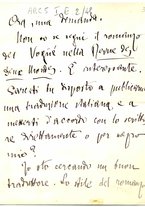 ARC5 I E 2/48
Ora, una domanda.
Non so se segue il romanzo
del Vogüé nella Revue des
Deux Mondes. È interessante.
Sareste in disposto a pubblicarne
una traduzione italiana, e a
mettervi d'accordo con lo scrittore
direttamente o per mezzo
mio?
Io sto cercando un buon
traduttore. Lo stile del romanzo